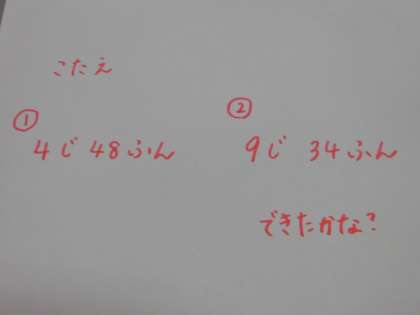 こたえ
① 4じ 48ふん
② 9じ 34ふん
できたかな?